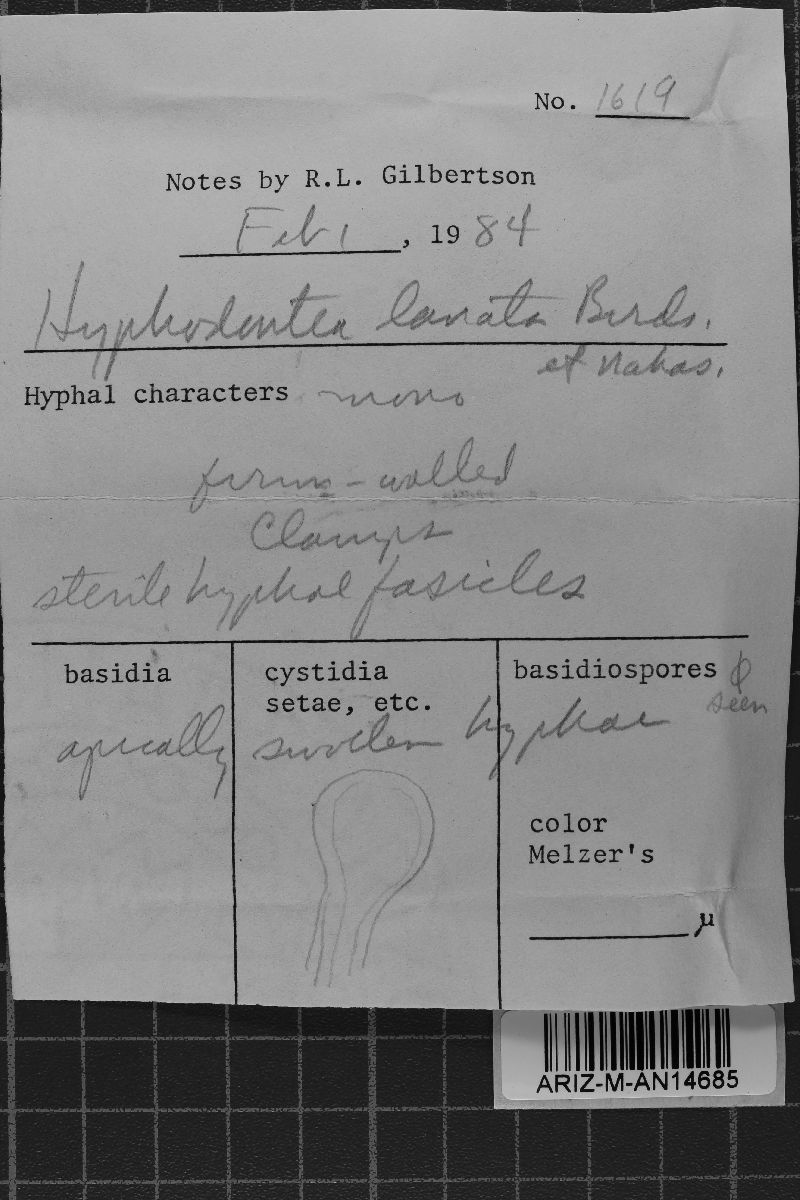 No. 1619
Notes by R.L. Gilbertson
Feb 1, 1984
Hyphodontea lanata Burds.
et Nakas.
Hyphal characters mono
firm-walled
Clamps
sterile hyphal fasicles
basidia
cystidia
setae, etc.
basidiospores ϕ
seen
apically swollen hyphae
color
Melzer's
µ
ARIZ-M-AN14685